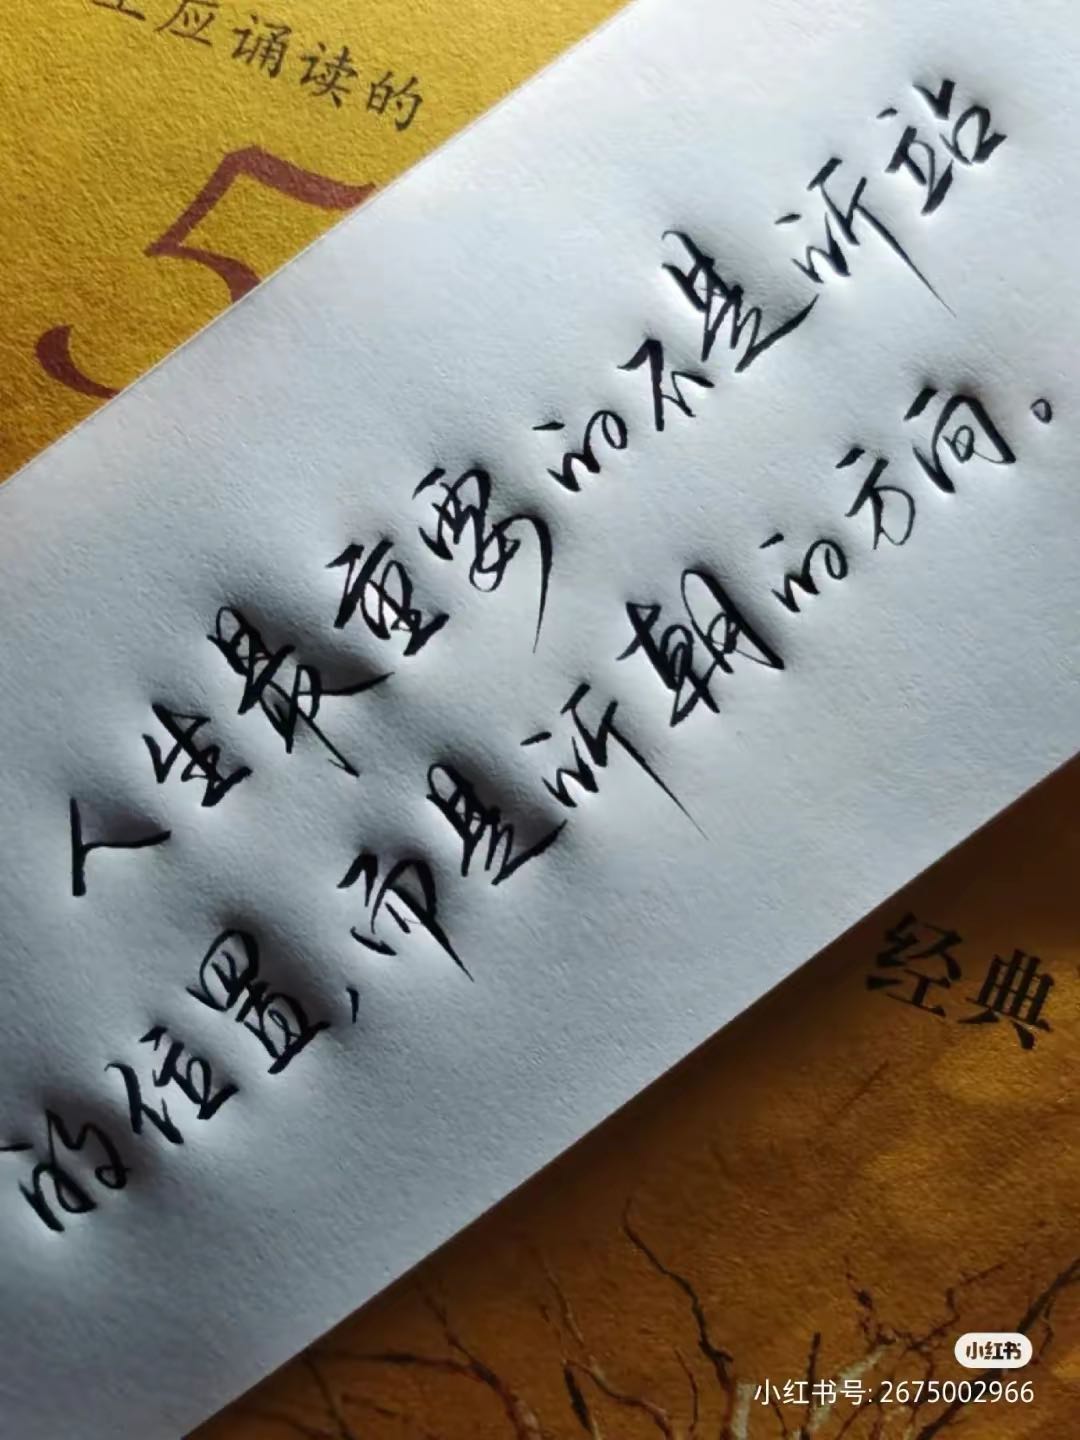 生应诵读的
5
人生最重要的不是所站
的位置，而是所朝的方向。
经典
小红书
小红书号: 2675002966